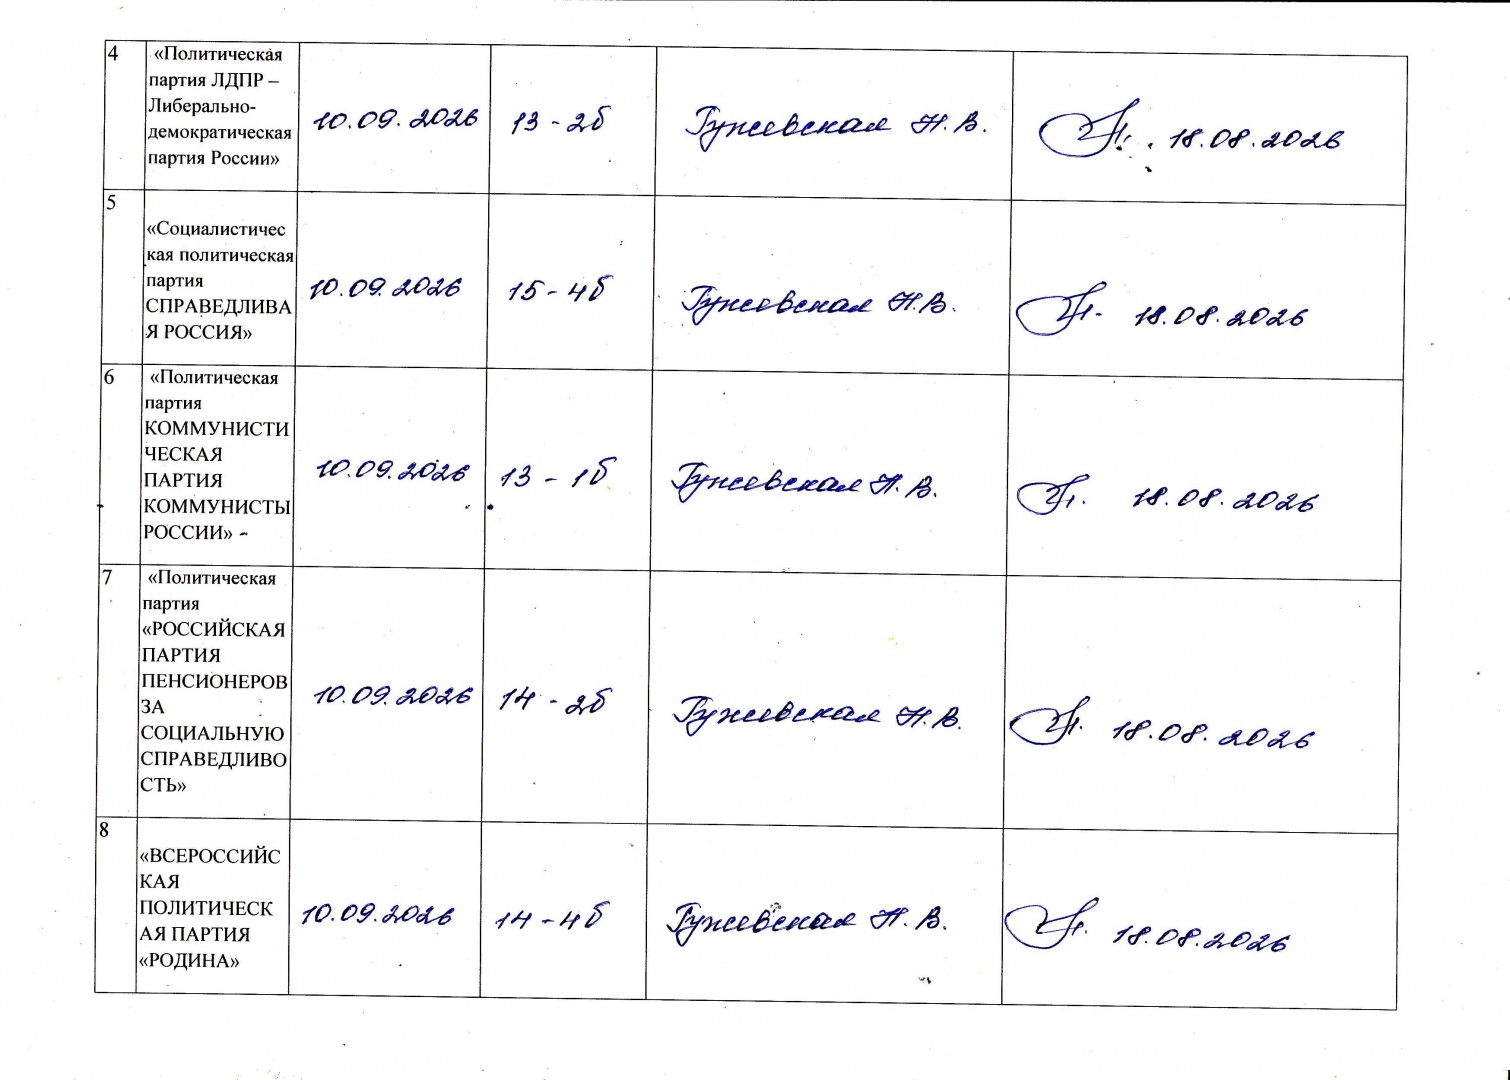 4
«Политическая
партия ЛДПР –
Либерально-
демократическая
партия России»
10.09.2026
13-2б
Гужевская Н.В.
18.08.2026
5
«Социалистичес
кая политическая
партия
СПРАВЕДЛИВА
Я РОССИЯ»
10.09.2026
15-4б
Гужевская Н.В.
18.08.2026
6
«Политическая
партия
КОММУНИСТИ
ЧЕСКАЯ
ПАРТИЯ
КОММУНИСТЫ
РОССИИ» -
10.09.2026
13-1б
Гужевская Н.В.
18.08.2026
7
«Политическая
партия
«РОССИЙСКАЯ
ПАРТИЯ
ПЕНСИОНЕРОВ
ЗА
СОЦИАЛЬНУЮ
СПРАВЕДЛИВО
СТЬ»
10.09.2026
14-2б
Гужевская Н.В.
18.08.2026
8
«ВСЕРОССИЙС
КАЯ
ПОЛИТИЧЕСК
АЯ ПАРТИЯ
«РОДИНА»
10.09.2026
14-4б
Гужевская Н.В.
18.08.2026